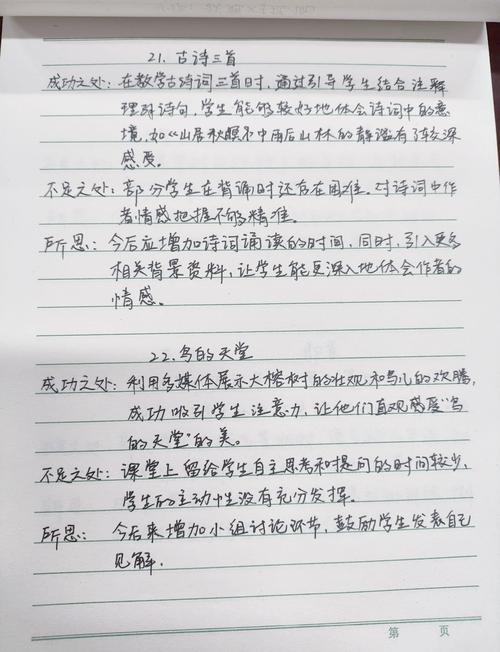 21. 古诗三首
成功之处: 在教学古诗词三首时,通过引导学生结合注释
理解诗句,学生能够较好地体会诗词中的意
境,如《山居秋暝》中雨后山林的静谧有了较深
感受。
不足之处: 部分学生在背诵时还存在困难。对诗词中作
者情感把握不够精准。
所思: 今后应增加诗词诵读的时间,同时,引入更多
相关背景资料,让学生能更深入地体会作者的
情感。
22. 鸟的天堂
成功之处: 利用多媒体展示大榕树的壮观和鸟儿的欢腾,
成功吸引学生注意力,让他们直观感受"鸟
的天堂"的美。
不足之处: 课堂上留给学生自主思考和提问的时间较少,
学生的主动性没有充分发挥。
所思: 今后来增加小组讨论环节,鼓励学生发表自己
见解.
第 页